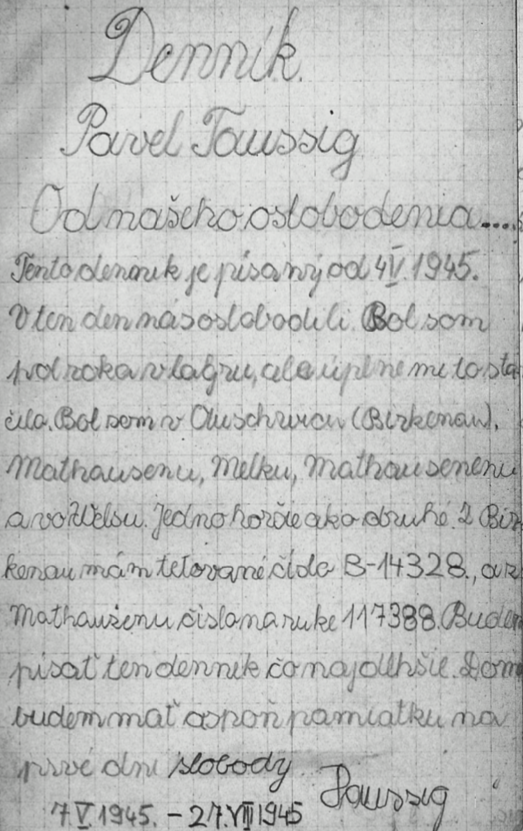 Denník.
Pavel Taussig
Od našeho oslobodenia....
Tento dennik je písaný od 4 V. 1945.
V ten den nás oslobodili. Bol som
pol roka v lagru, ale úplne mi to sta
čila. Bol som v Auschwicu (Birkenau),
Mathausenu, Melku, Mathausenenu
a vo Welsu. Jedno horšie ako druhé. Z Bir
kenau mám tetované číslo B-14328., a z
Mathausenu číslo na ruke 117388. Budem
písať ten dennik čo najdlhšie. Doma
budem mať aspoň pamiatku na
prvé dni slobody.
Paussig
7. V 1945. – 27. VIII 1945